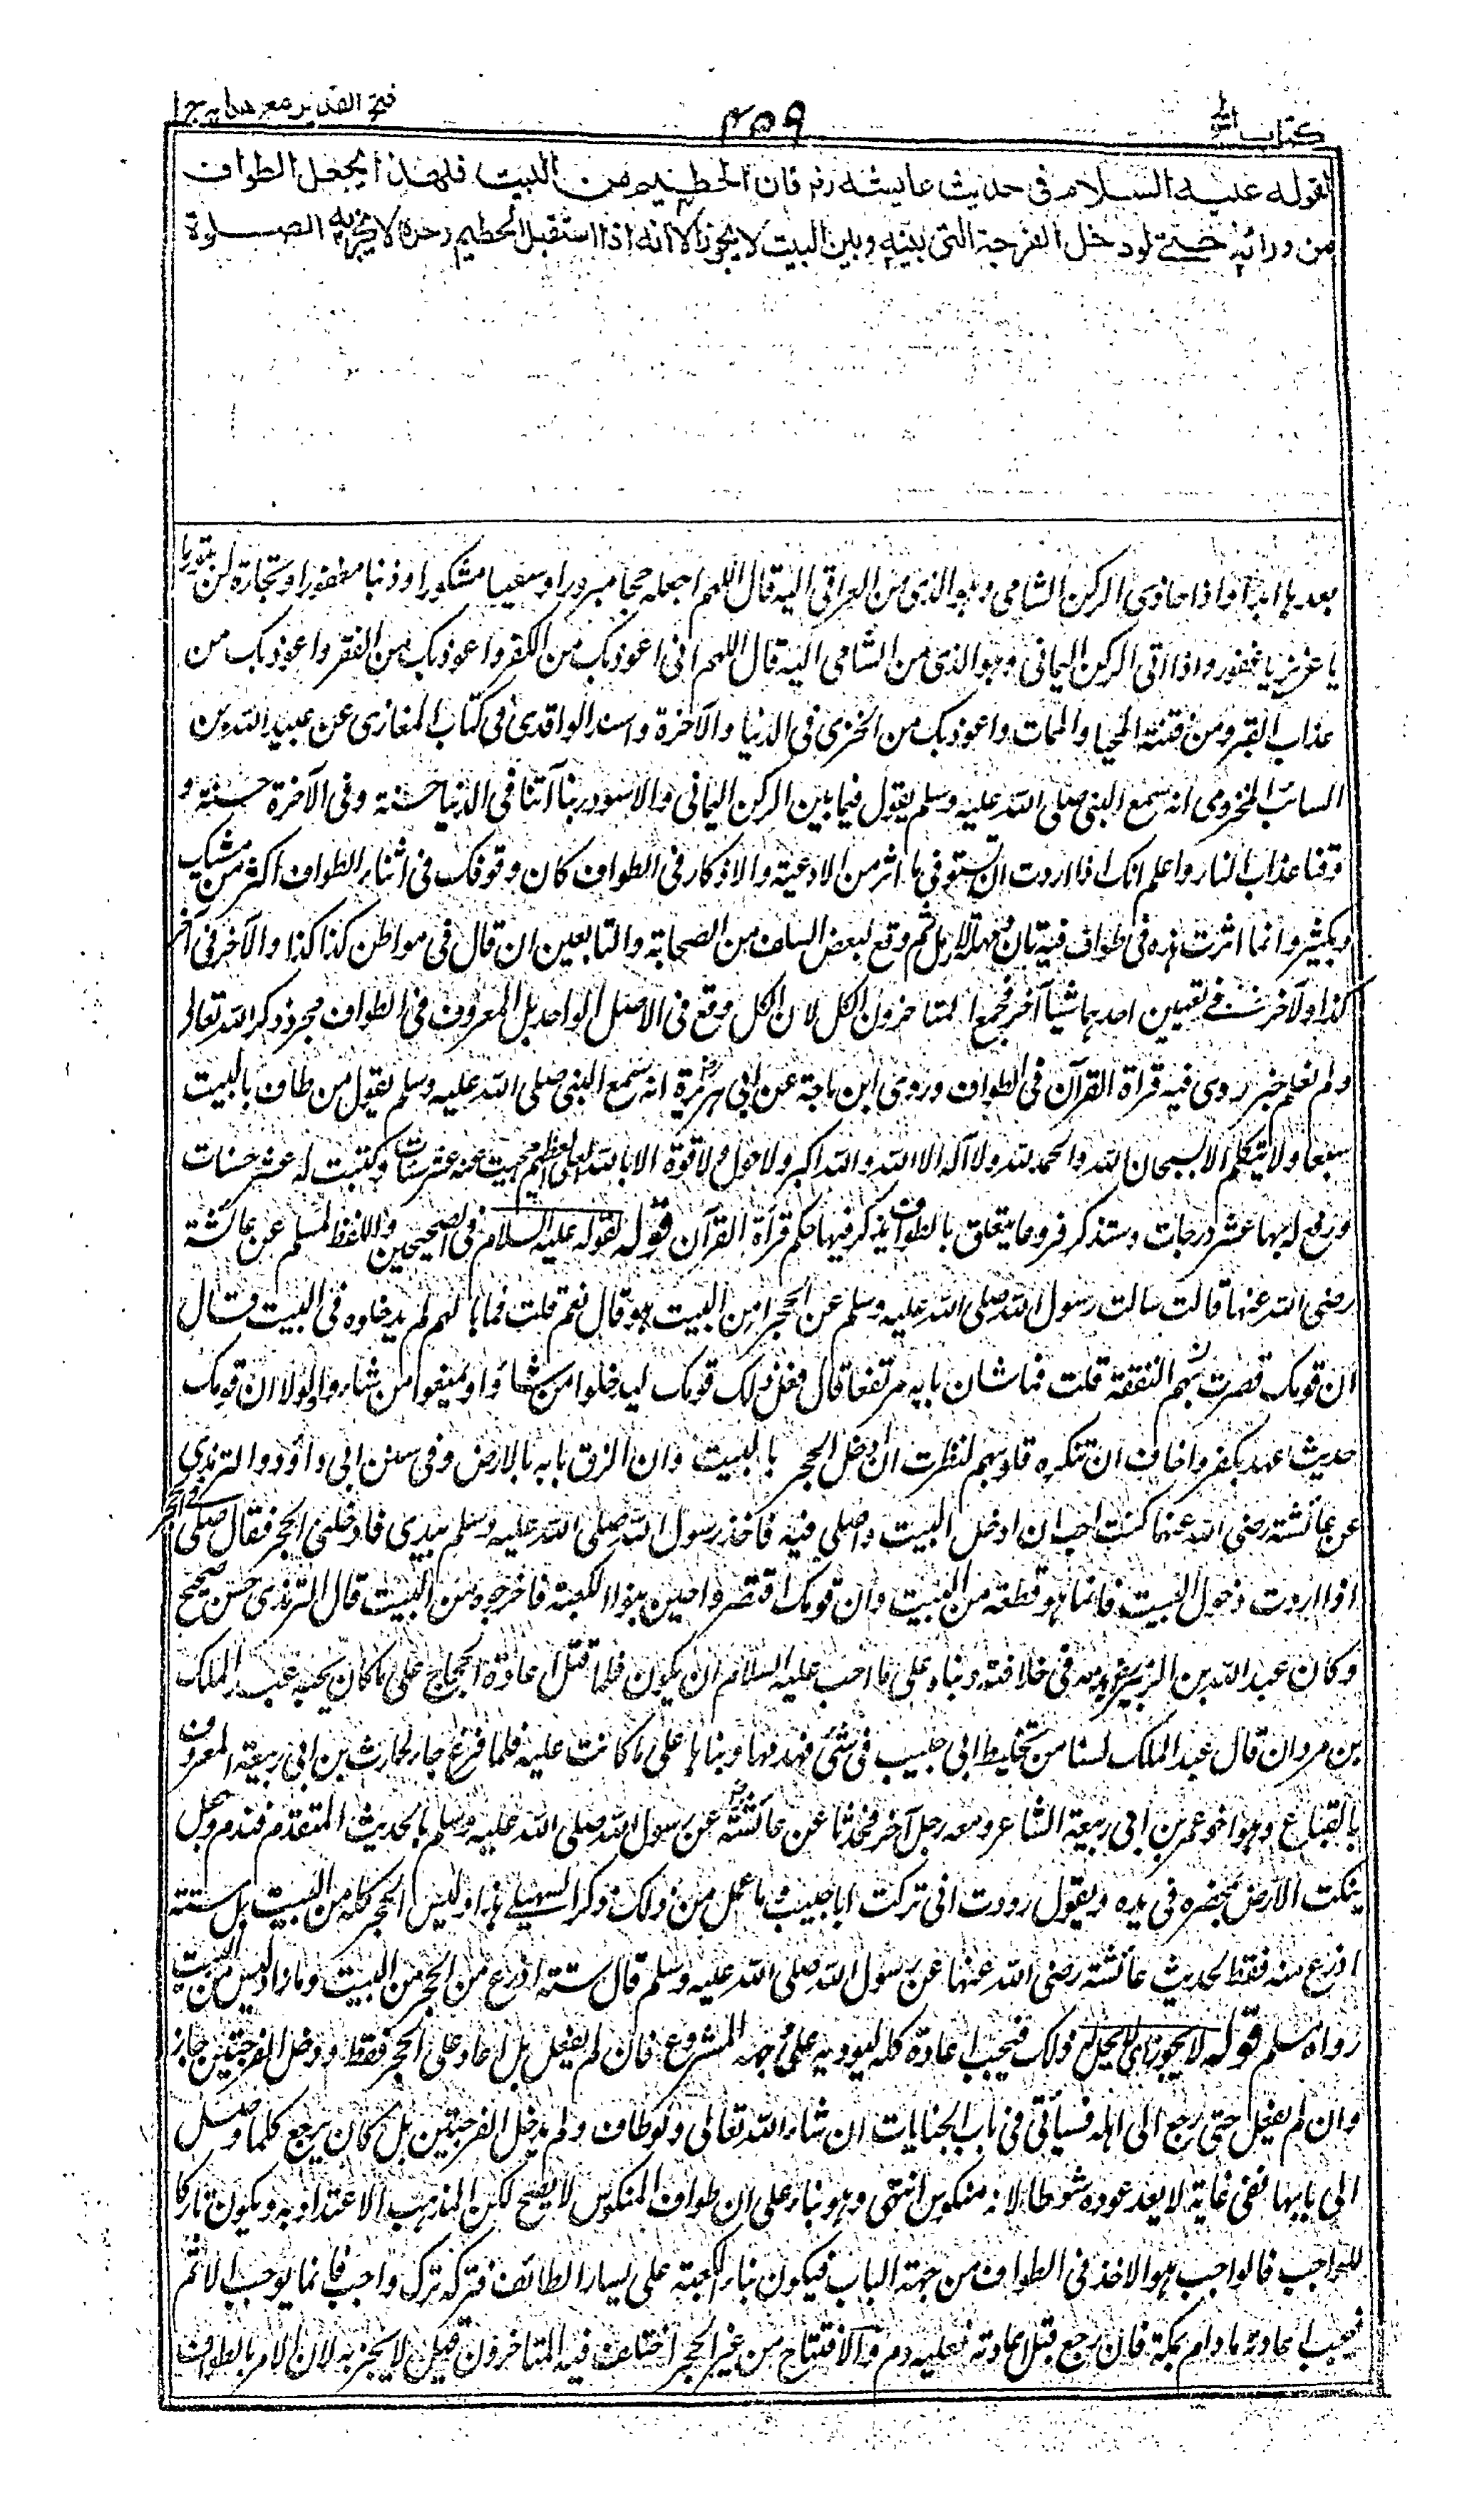 كتاب الحج
٤٥٩
فتح القدير مع هدايه ج ١
لقوله عليه السلام فى حديث عايشه رض فان الحطيم من البيت فلهذا يجعل الطواف
من ورائه حتى لو دخل الفرجة التى بينه وبين البيت لا يجوز الا انه اذا استقبل الحطيم وحده لا يجزيه الصلوة
بعدها ابدا واذا حاذى الركن الشامى وهو الذى من العراقى اليه قال اللهم اجعله حجا مبرورا وسعيا مشكورا وذنبا مغفورا وتجارة لن تبور يا
يا عزيز يا غفور واذا اتى الركن اليمانى وهو الذى من الشامى اليه قال اللهم انى اعوذ بك من الكفر واعوذ بك من الفقر واعوذ بك من
عذاب القبر ومن فتنة المحيا والممات واعوذ بك من الخزى فى الدنيا والآخرة واسند الواقدى فى كتاب المغازى عن عبيد الله بن
السائب المخزومى انه سمع النبى صلى الله عليه وسلم يقول فيما بين الركن اليمانى والاسود ربنا آتنا فى الدنيا حسنة وفى الآخرة حسنة و
وقنا عذاب النار واعلم انك اذا اردت ان تستوفى ما اثر من الادعية والاذكار فى الطواف كان وقوفك فى اثناء الطواف اكثر من مشيك
وبكثير وانما اثرت هذه فى طواف فيه تان ومهلة لا رمل ثم وقع لبعض السلف من الصحابة والتابعين ان قال فى مواطن كذا كذا والآخر فى آخر
كذا ولآخر فى تعيين احدهما شيأ آخر فجمع المتاخرون الكل لان الكل وقع فى الاصل الواحد بل المعروف فى الطواف مجرد ذكر الله تعالى
ولم نعلم خبر روى فيه قراة القرآن فى الطواف وروى ابن ماجة عن ابى هريرة رض انه سمع النبى صلى الله عليه وسلم يقول من طاف بالبيت
سبعا ولا يتكلم الا بسبحان الله والحمد لله ولا آله الا الله والله اكبر ولا حول ولا قوة الا بالله العلى العظيم محيت عنه عشر سيئات وكتبت له عشر حسنات
ورفع له بها عشر درجات وستذكر فروعا يتعلق بالطواف يذكر فيها حكم قرأة القرآن قوله لقوله عليه السلام فى الصحيحين واللفظ لمسلم عن عائشة
رضى الله عنها قالت سالت رسول الله صلى الله عليه وسلم عن الحجر امن البيت هو قال نعم قلت فما بالهم لم يدخلوه فى البيت قال
ان قومك قصرت بهم النفقة قلت فما شان بابه مرتفعا قال فعل ذلك قومك ليدخلوا من شاؤا ويمنعوا من شاءوا ولولا ان قومك
حديث عهد بكفر واخاف ان تنكره قلوبهم لنظرت ان ادخل الحجر بالبيت وان الزق بابه بالارض وفى سنن ابى داؤد والترمذى
عن عائشة رضى الله عنها كنت احب ان ادخل البيت واصلى فيه فاخذ رسول الله صلى الله عليه وسلم بيدى فادخلنى الحجر فقال صلى فى الحجر
اذا اردت دخول البيت فانما هو قطعة من البيت وان قومك اقتصروا حين بنوا الكعبة فاخرجوه من البيت قال الترمذى حسن صحيح
وكان عبد الله بن الزبير هدمه فى خلافته وبناه على ما احب عليه السلام ان يكون فلما قتل اعاده الحجاج على ما كان يحبه عبد الملك
بن مروان قال عبد الملك لسنا من تخليط ابى خبيب فى شئ فهدمها وبناها على ما كانت عليه فلما فرغ جاء الحارث بن ابى ربيعة المعروف
بالقباع وهو اخو عمر بن ابى ربيعة الشاعر ومعه رجل آخر فحدثا عن عائشة رض عن رسول الله صلى الله عليه وسلم بالحديث المتقدم فندم وجعل
ينكت الارض بمخصرة فى يده ويقول وددت انى تركت ابا خبيب وما عمل من ذلك ذكر السهيلى هذا وليس الحجر كله من البيت بل ستة
اذرع منه فقط لحديث عائشة رضى الله عنها عن رسول الله صلى الله عليه وسلم قال ستة اذرع من الحجر من البيت وما زاد ليس من البيت
رواه مسلم قوله لا يجوز اى لا يحل له ذلك فيجب اعادة كله ليوديه على وجهه المشروع فان لم يفعل بل اعاد على الحجر فقط ودخل الفرجتين جاز
وان لم يفعل حتى رجع الى اهله فسيأتى فى باب الجنايات ان شاء الله تعالى ولو طاف ولم يدخل الفرجتين بل كان يرجع كلما وصل
الى بابها ففى غاية لا يعد عوده شوطا لانه منكوس انتهى وهو بناء على ان طواف المنكوس لا يصح لكن المذهب الاعتداد به ويكون تاركا
للواجب فالواجب هو الاخذ فى الطواف من جهة الباب فيكون بناء الكعبة على يسار الطائف فتركه ترك واجب فانما يوجب الاثم
فيجب اعادته ما دام بمكة فان رجع قبل اعادته فعليه دم والافتتاح من غير الحجر اختلف فيه المتاخرون قيل لا يجزيه لان الامر بالطواف